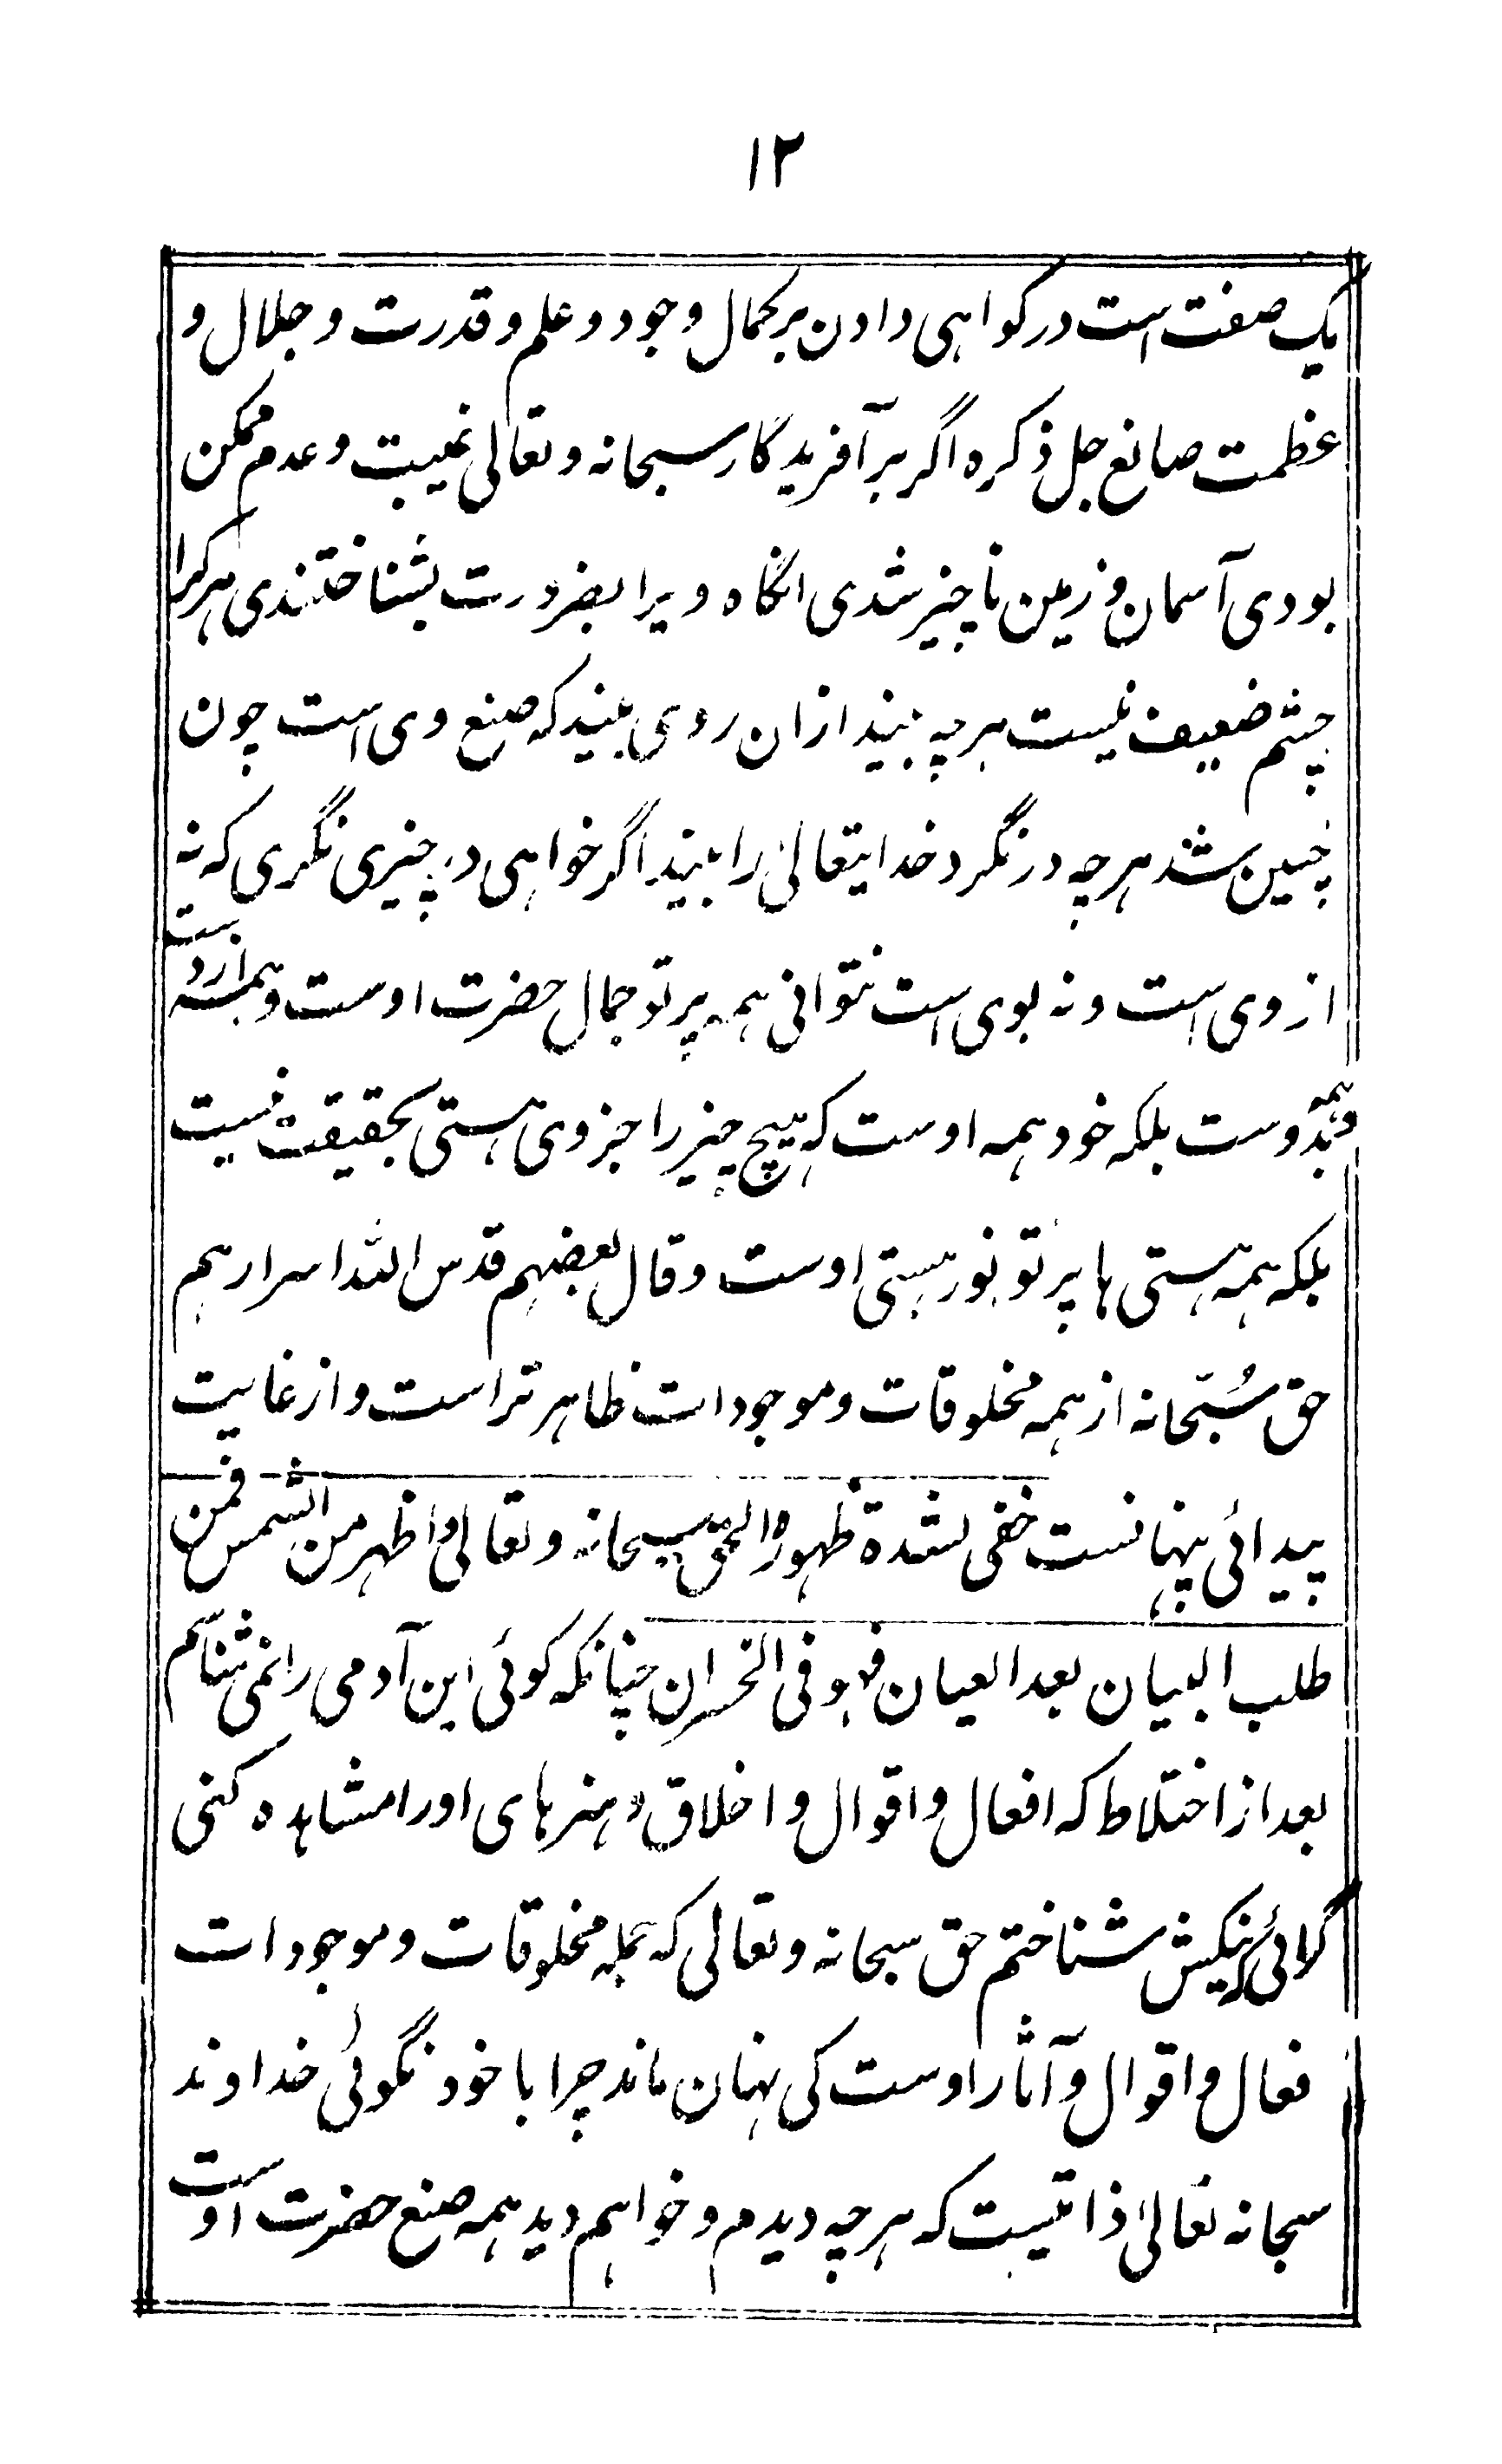 ۱۲
یک صفت است در کواهی دادن بر کمال وجود و علم و قدرت و جلال و
عظمت صانع جل ذکره اگر بر آفریدگار سبحانه و تعالی غیبت و عدم ممکن
بودی آسمان و زمین ناچیز شدی انگاه ویرا بضرورت بشناختندی هرکرا
چشم ضعیف نیست هرچه بیند ازان روی بیند که صنع وی است چون
چنین شد هرچه درنگرد خدایتعالی را بیند اگر خواهی در چیزی نگری که نه
از وی است و نه بوی است نتوانی همه پرتو جمال حضرت اوست و همه ازوست
و همه بدوست بلکه خود همه اوست که هیچ چیز را جز وی هستی بحقیقت نیست
بلکه همه هستی ها پرتو نور هستی اوست و قال بعضهم قدس الله اسرارهم
حق سُبحانه از همه مخلوقات و موجودات ظاهرتر است و از غایت
پیدائی پنهانست خفی لشدة ظهوره الحق سبحانه و تعالی اظهر من الشمس فمن
طلب البیان بعد العیان فهو فی الخسران چنانکه کوئی این آدمی را نمی شناسم
بعد از اختلاط که افعال و اقوال و اخلاق و هنرهای اورا مشاهده کنی
نیکش شناختم حق سبحانه و تعالی که جمله مخلوقات و موجودات
فعال و اقوال و آثار اوست کی نهان ماند چرا با خود نگوئی خداوند
سبحانه تعالی ذاتیست که هرچه دیدم و خواهم دید همه صنع حضرت اوست